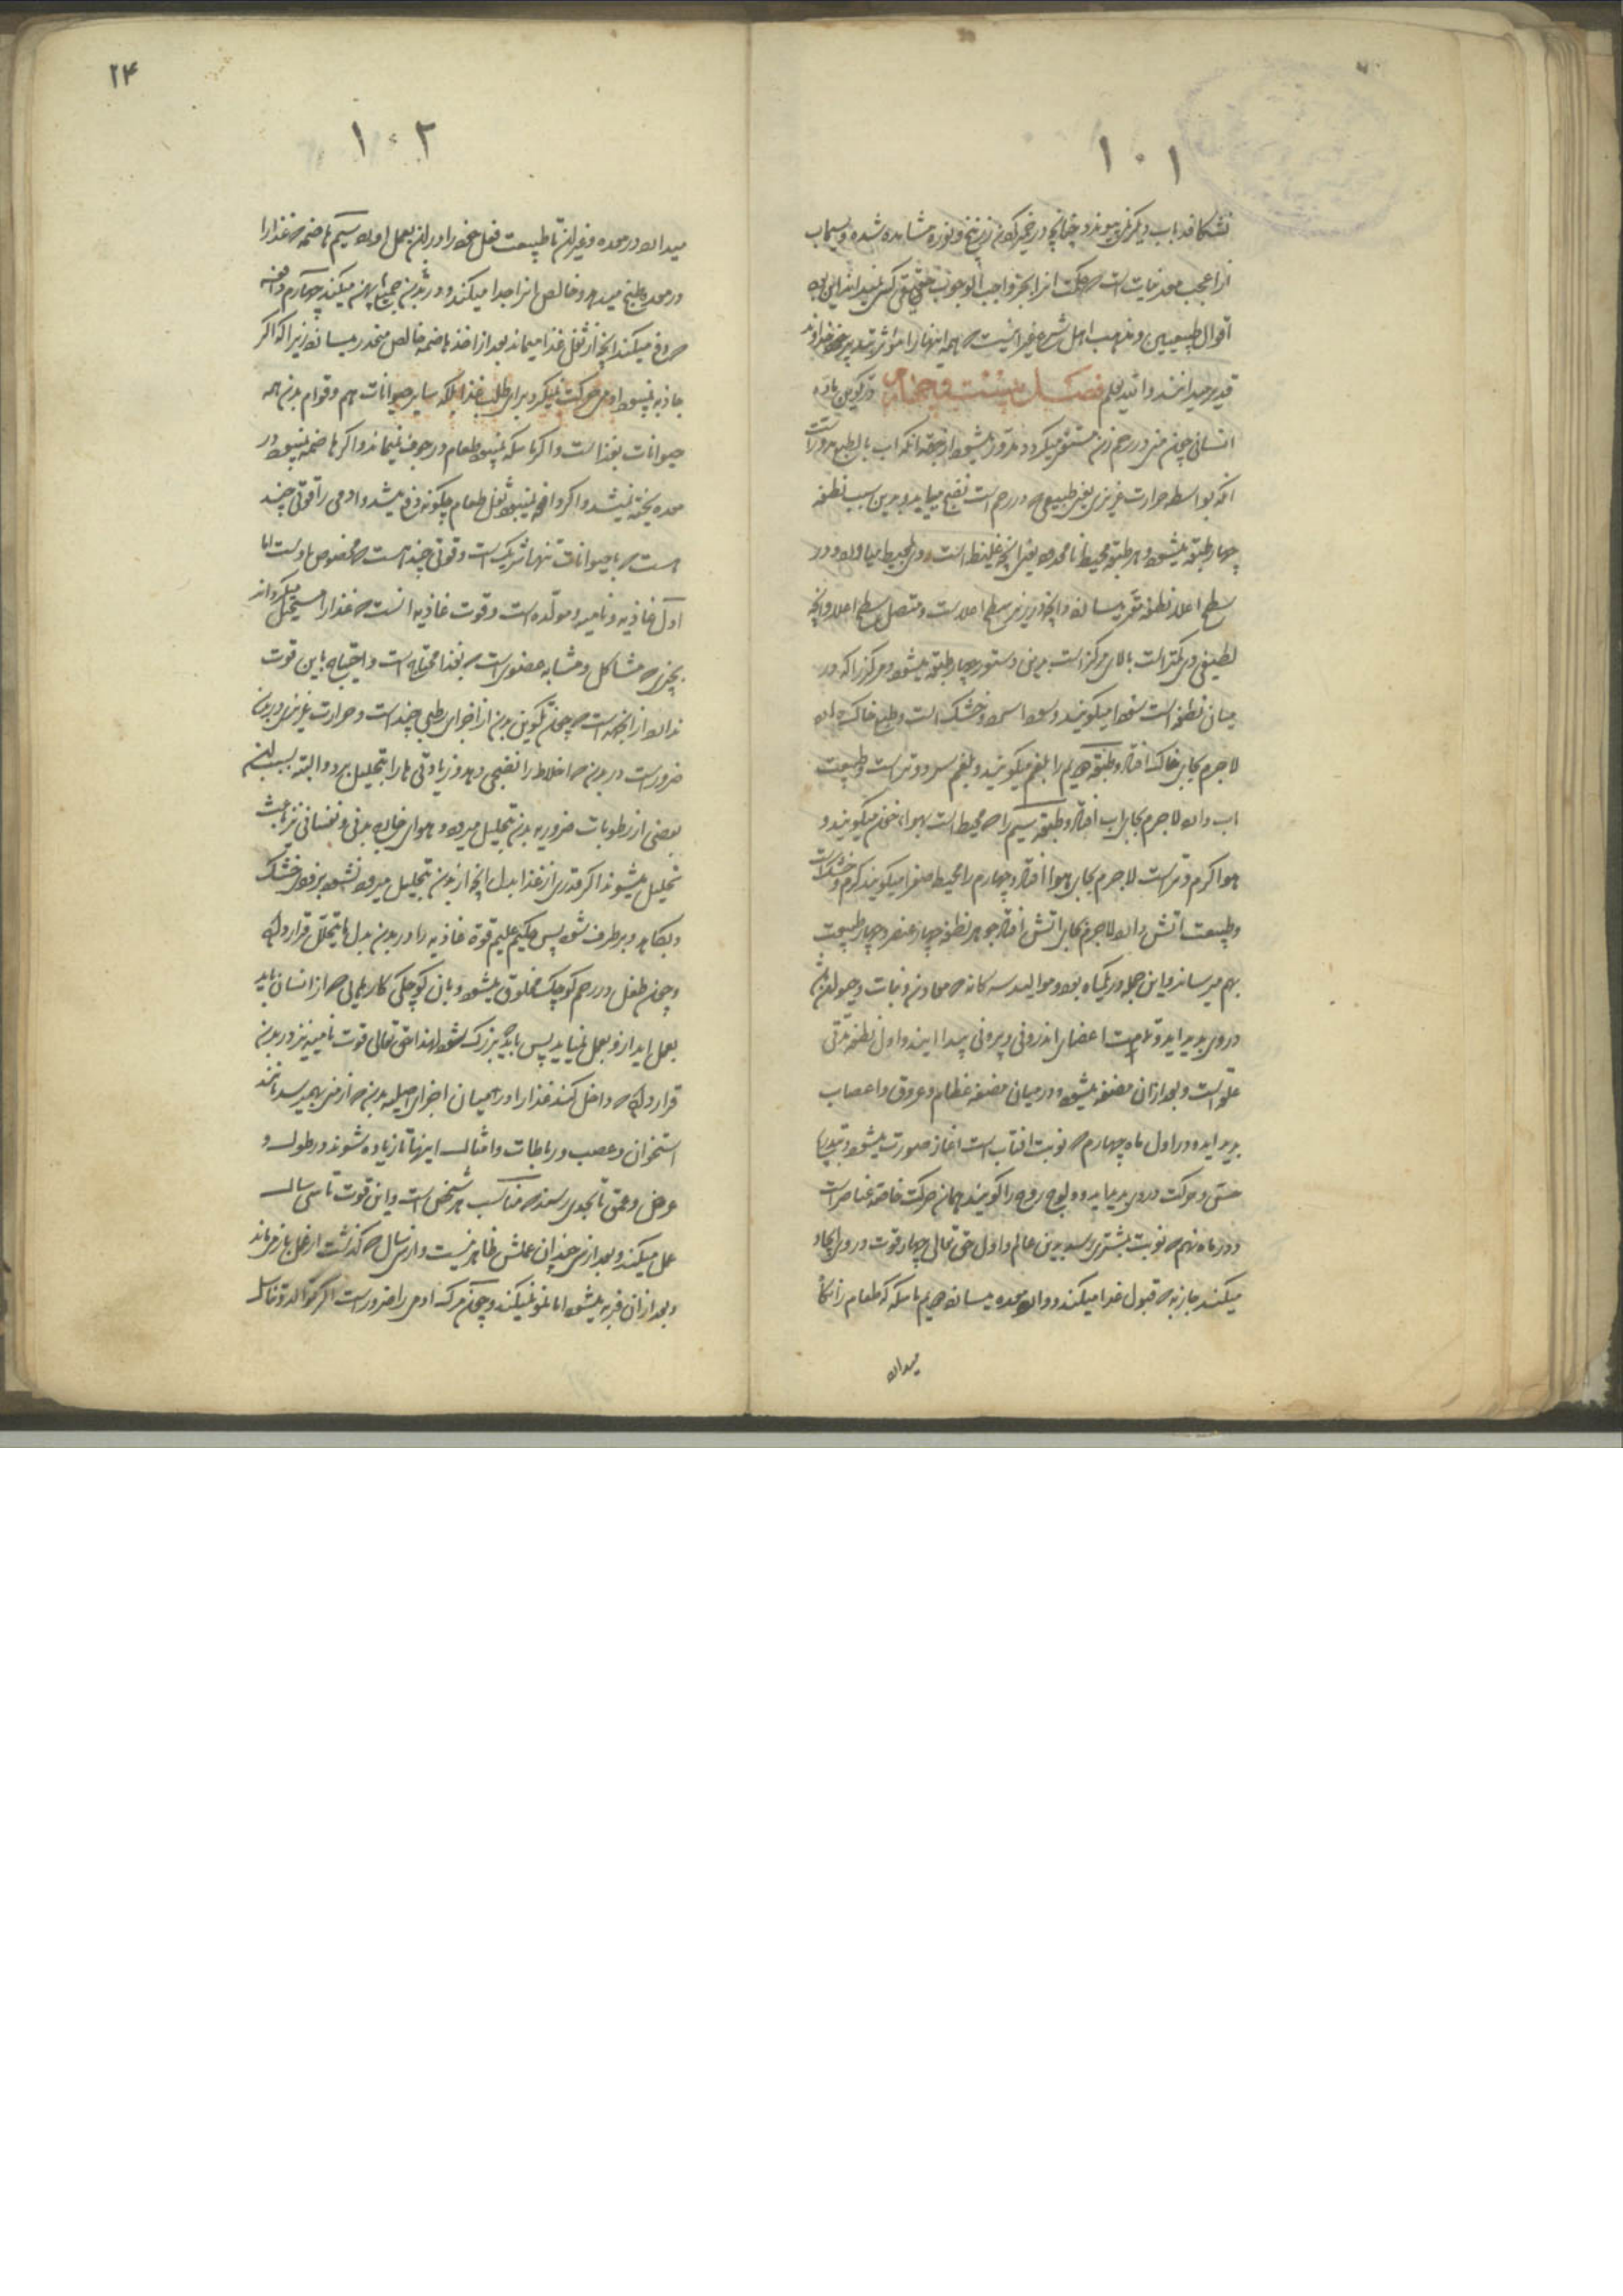 ۱۰۱
نشکافد اب دیگر نمی پیوندد چنانچه در خمیر کردن زرنیخ و نوره مشاهده شده و سیماب
از اعجب معدنیات است که حکمت انرا بجز واجب الوجوب حقیقی کسی نمیداند این بود
اقوال طبیعیین و مذهب اهل شرع غیر اینست که همه اینها را مؤثر بتدبیر خداوند
قدیر میدانند و الله یعلم فصل بیست و چهارم در تکوین ماده
انسانی چون منی در رحم زن مستقر میگردد مدور میشود از جهة انکه اب بالطبع مدور است
انکه بواسطه حرارت غریزی یعنی طبیعی که در رحم است نضج میابد و بدین سبب نطفه
چهار طبقه میشود و هر طبقه محیط مادون یعنی انچه غلیظ است روی بمحیط میاورد و در
سطح اعلا نطفه مقر میسازد و انچه در زیر سطح اعلا است و متصل بسطح اعلا و انچه
لطیفی وی کمتر است بالای مرکز است بدین دستور چهار طبقه میشود و مرکز را که در
میان نطفه است سودا میگویند و سودا سرد و خشک است و طبع خاک دارد
لاجرم بجای خاک افتاد و طبقه دویم را بلغم میگویند و بلغم سرد و تر است و طبیعت
اب دارد لاجرم بجای اب افتاد و طبقه سیم را که محیط است بهوا، خون میگویند و
هوا گرم و تر است لاجرم بجای هوا افتاد و چهارم را محیط صفرا میگویند گرم و خشک است
و طبیعت اتش دارد لاجرم بجای اتش افتاد جوهر نطفه چهار عنصر و چهار طبیعت
بهم میرساند و این جمله در یکماه بود و موالید سه گانه که معادن و نبات و حیوان باشد
در وی پدید اید و تمامت اعضای اندرونی و بیرونی پیدا ایند و اول نطفه مدتی
علقه است و بعد ازان مضغه میشود و در میان مضغه عظام و عروق و اعصاب
پدید اید و در اول ماه چهارم که نوبت افتاب است اغاز صورت میشود و بتدریج
حس و حرکت در وی پدید میاید و ولوج روح را گویند همان حرکت خاصه عناصر است
و در ماه نهم که نوبت بمشتری رسد بدین عالم و اول حق تعالی چهار قوت در وی ایجاد
میکند جاذبه که قبول غذا میکند و وارد معده میسازد دویم ماسکه که طعام را نگاه
میدارد
۲۴
۱۰۲
میدارد در معده و غیر ان تا طبیعت فعل خود را در ان بعمل اورد سیم هاضمه که غذا را
در معده طبخ میدهد و خالص انرا جدا میکند و در بدن جمیع پهن میکند چهارم دافعه
که دفع میکند انچه از ثفل غذا میماند بعد از اخذ هاضمه خالص منحدر میسازد زیرا که اگر
جاذبه نمیبود ادمی حرکت نمیکرد برای طلب غذا بلکه سایر حیوانات هم و قوام بدن همه
حیوانات بغذا است و اگر ماسکه نمیبود طعام در جوف نمیماند و اگر هاضمه نمیبود در
معده پخته نمیشد و اگر دافعه نمیبود ثفل طعام چگونه دفع میشد و ادمی را قوتی چند
هست که با حیوانات تنها شریک است و قوتی چند هست که مخصوص باوست اما
اول غاذیه و نامیه و مولده است و قوت غاذیه انست که غذا را مستحیل میگرداند
بچیزی که مشاکل و مشابه عضوی است که بغذا محتاج است و احتیاج باین قوت
ندارد از انجهة است که چون تکوین بدن از اجزای رطبی چند است و حرارت غریزی در بدن
ضرور است در بدن که اخلاط را نضجی دهد و زیادتی ها را بتحلیل برد و البته بسبب این
بعضی از رطوبات ضروریه بدن بتحلیل میرود و هوای خارج بدنی و نفسانی نیز باعث
تحلیل میشوند اگر قدری از غذا بدل انچه از بدن بتحلیل میرود نشود بزودی خشک
و بکاهد و برطرف شود پس حکیم علیم قوة غاذیه را در بدن بدل ما یتحلل قرار داده
و چون طفل در رحم کوچک مخلوق میشود و بان کوچکی کارهایی که از انسان باید
بعمل اید از او بعمل نمیاید پس باید که بزرگ شود لهذا حق تعالی قوت نامیه نیز در بدن
قرار داده که داخل کند غذا را در میان اجزای اصلیه بدن که از منی بهم میرسد مانند
استخوان و عصب و رباطات و امثال اینها تا زیاده شوند در طول و
عرض و عمق تا بحدی رسند که مناسب هر شخص است و این قوت تا سی سال
عمل میکند و بعد از سی چندان عملش ظاهر نیست و از سی سال که گذشت از عمل باز میماند
و بعد ازان فربه میشود اما نمو نمیکند و چون مرگ ادمی را ضرور است اگر توالد و تناسل